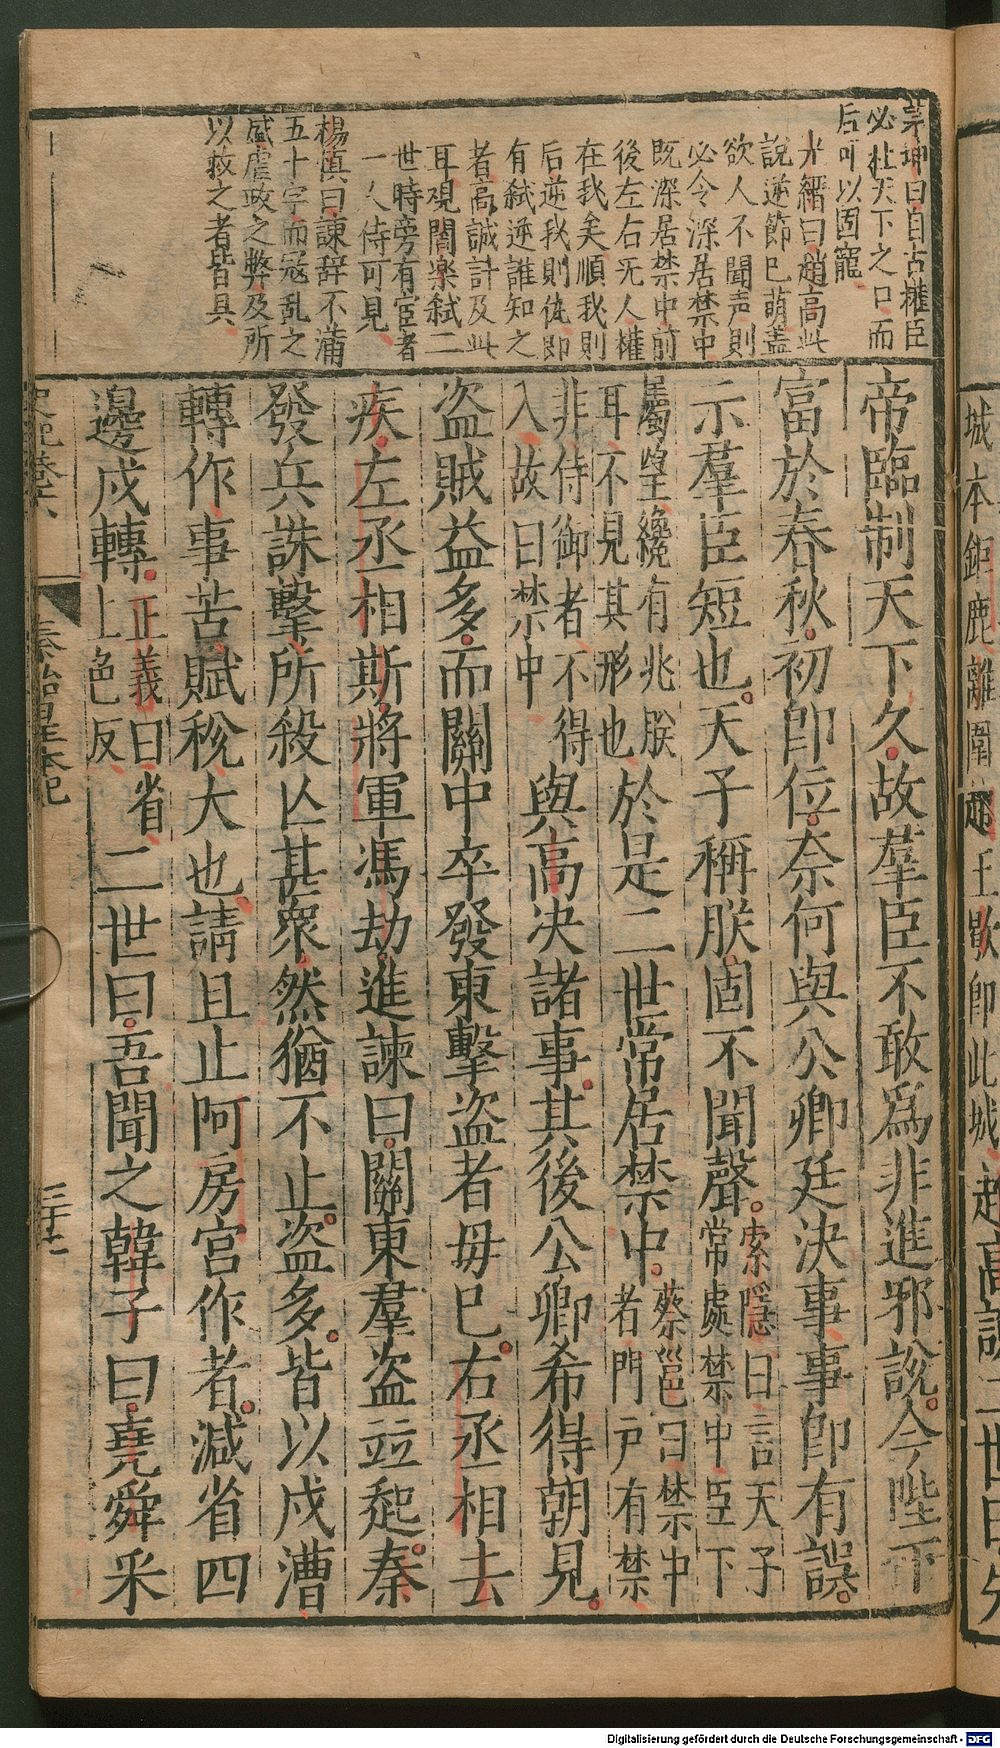 茅坤曰自古權臣
必杜天下之口而
后可以固寵
縉曰趙高此
說逆節已萌蓋
欲人不聞声則
必令深居禁中
既深居禁中前
後左右旡人權
在我矣順我則
后逆我則
有弑逆誰知之
者高誠計及此
耳覌閻楽弑二
世時旁有宦者
一人侍可見
楊慎曰諫辞不滿
五十字而冦乱之
盛虐政之弊及所
以救之者皆具
帝臨制天下久故羣臣不敢爲非進邪說今陛下
富於春秋初卽位奈何與公卿廷決事事卽有誤
示羣臣短也天子稱朕固不聞聲索隱曰言天子
常處禁中臣下
屬望纔有兆朕
耳不見其形也於是二世常居禁中蔡邕曰禁中
者門戸有禁
非侍御者不得
入故曰禁中與高决諸事其後公卿希得朝見
盗賊益多而關中卒發東擊盗者毋已右丞相去
疾左丞相斯將軍馮劫進諫曰關東羣盗竝起秦
發兵誅擊所殺亾甚衆然猶不止盗多皆以戍漕
轉作事苦賦稅大也請且止阿房宮作者減省四
邊戍轉正義曰省
上色反二世曰吾聞之韓子曰堯舜采
史記卷六
秦始皇本紀
城本鉅鹿離圍趙王歇卽此城趙高說二世曰先
Digitalisierung gefördert durch die Deutsche Forschungsgemeinschaft - DFG